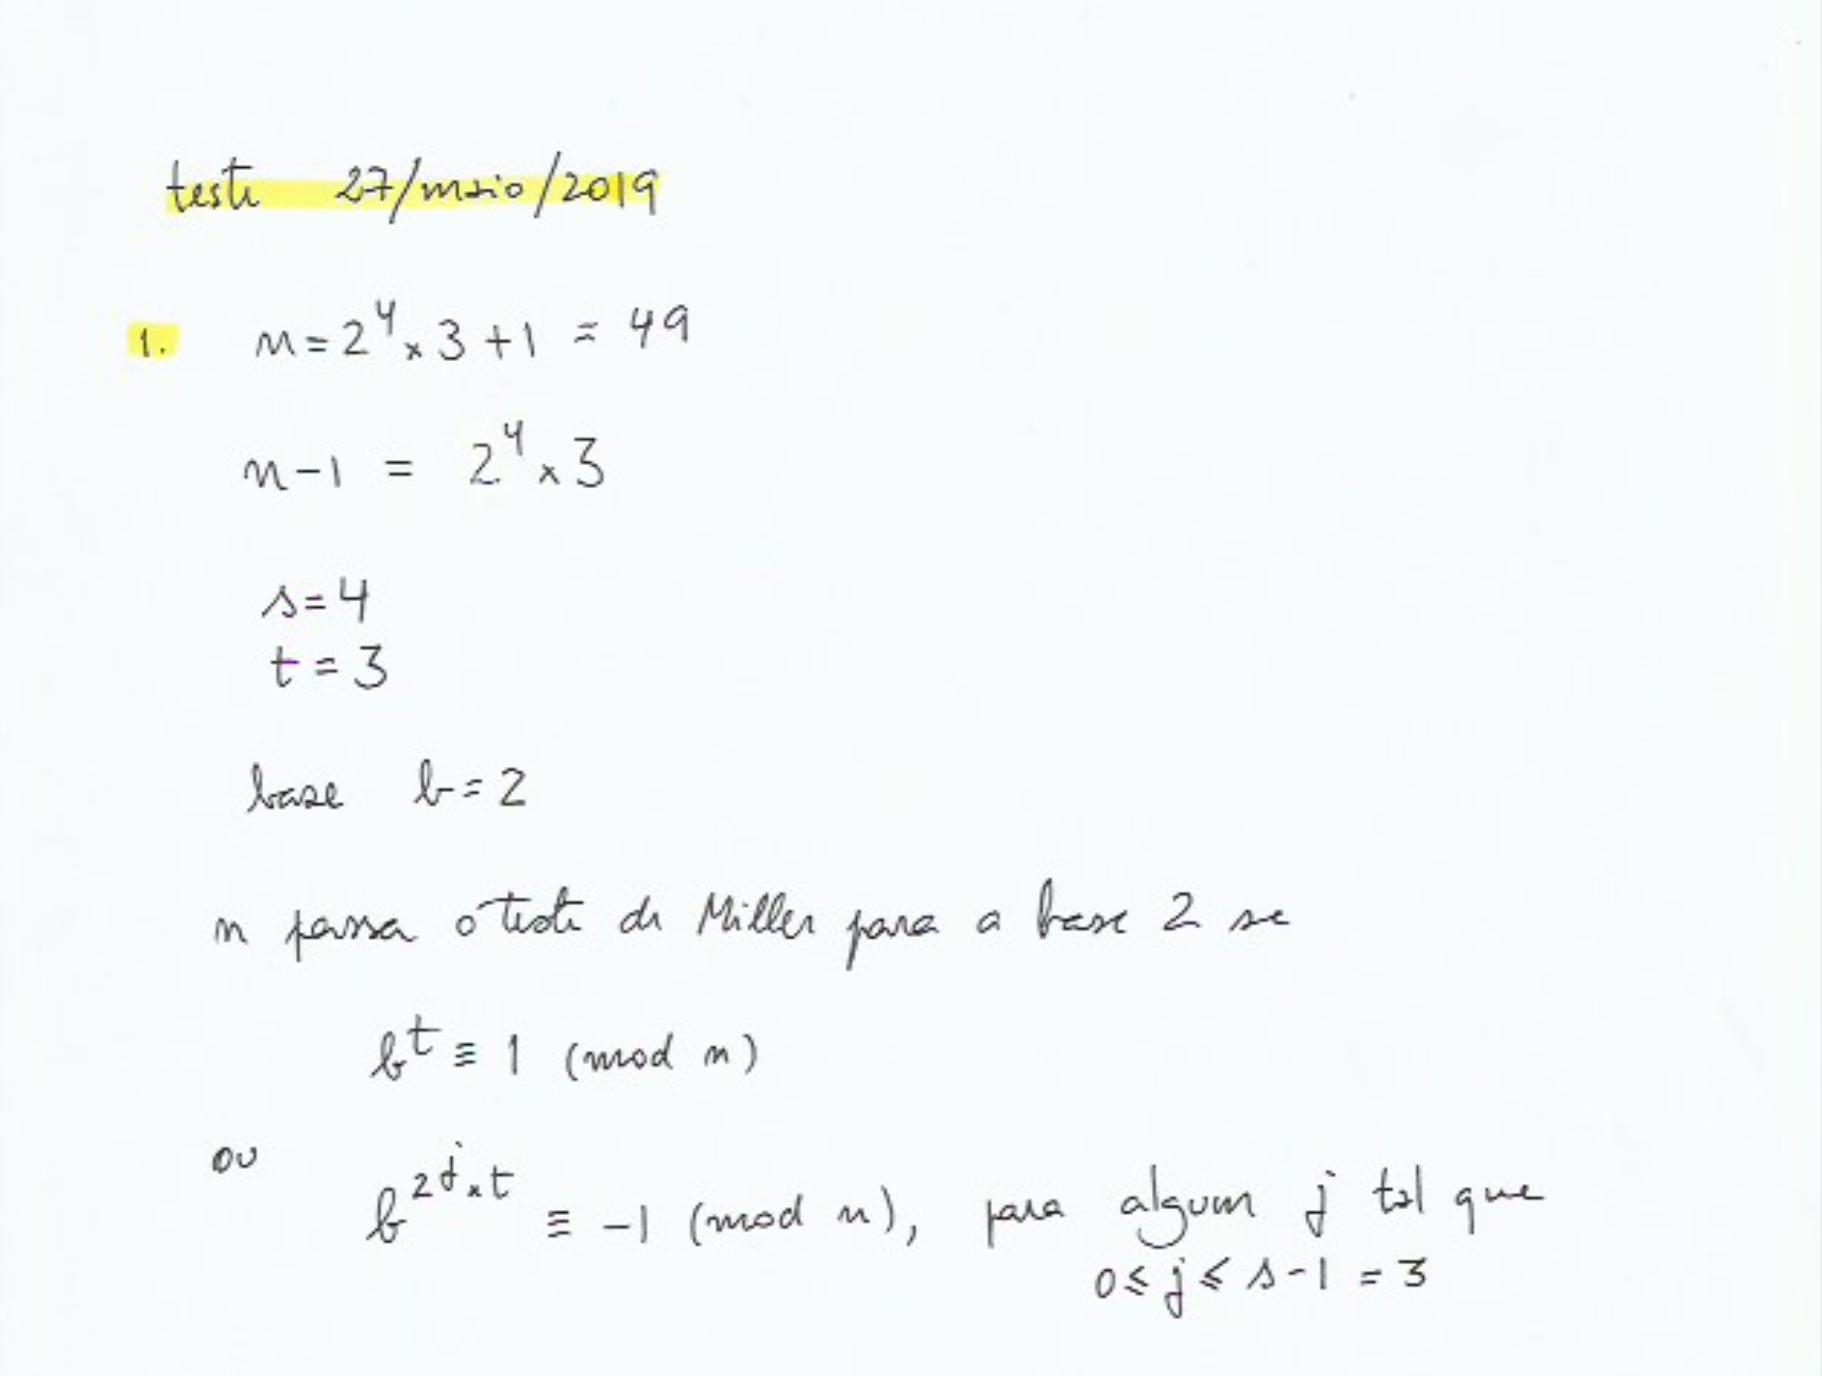 teste 27/maio/2019
1. n = 2⁴ × 3 + 1 = 49
n - 1 = 2⁴ × 3
s = 4
t = 3
base b = 2
n passa o teste de Miller para a base 2 se
b^t ≡ 1 (mod n)
ou
b^(2^j × t) ≡ -1 (mod n), para algum j tal que
0 ≤ j ≤ s - 1 = 3